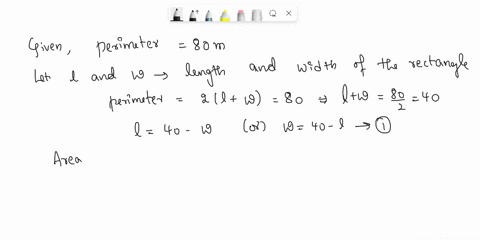 Given, perimeter = 80m
Let l and w → length and width of the rectangle
perimeter = 2(l + w) = 80 ⇒ l+w = 80/2 = 40
l = 40 - w (or) w = 40 - l → ①
Area